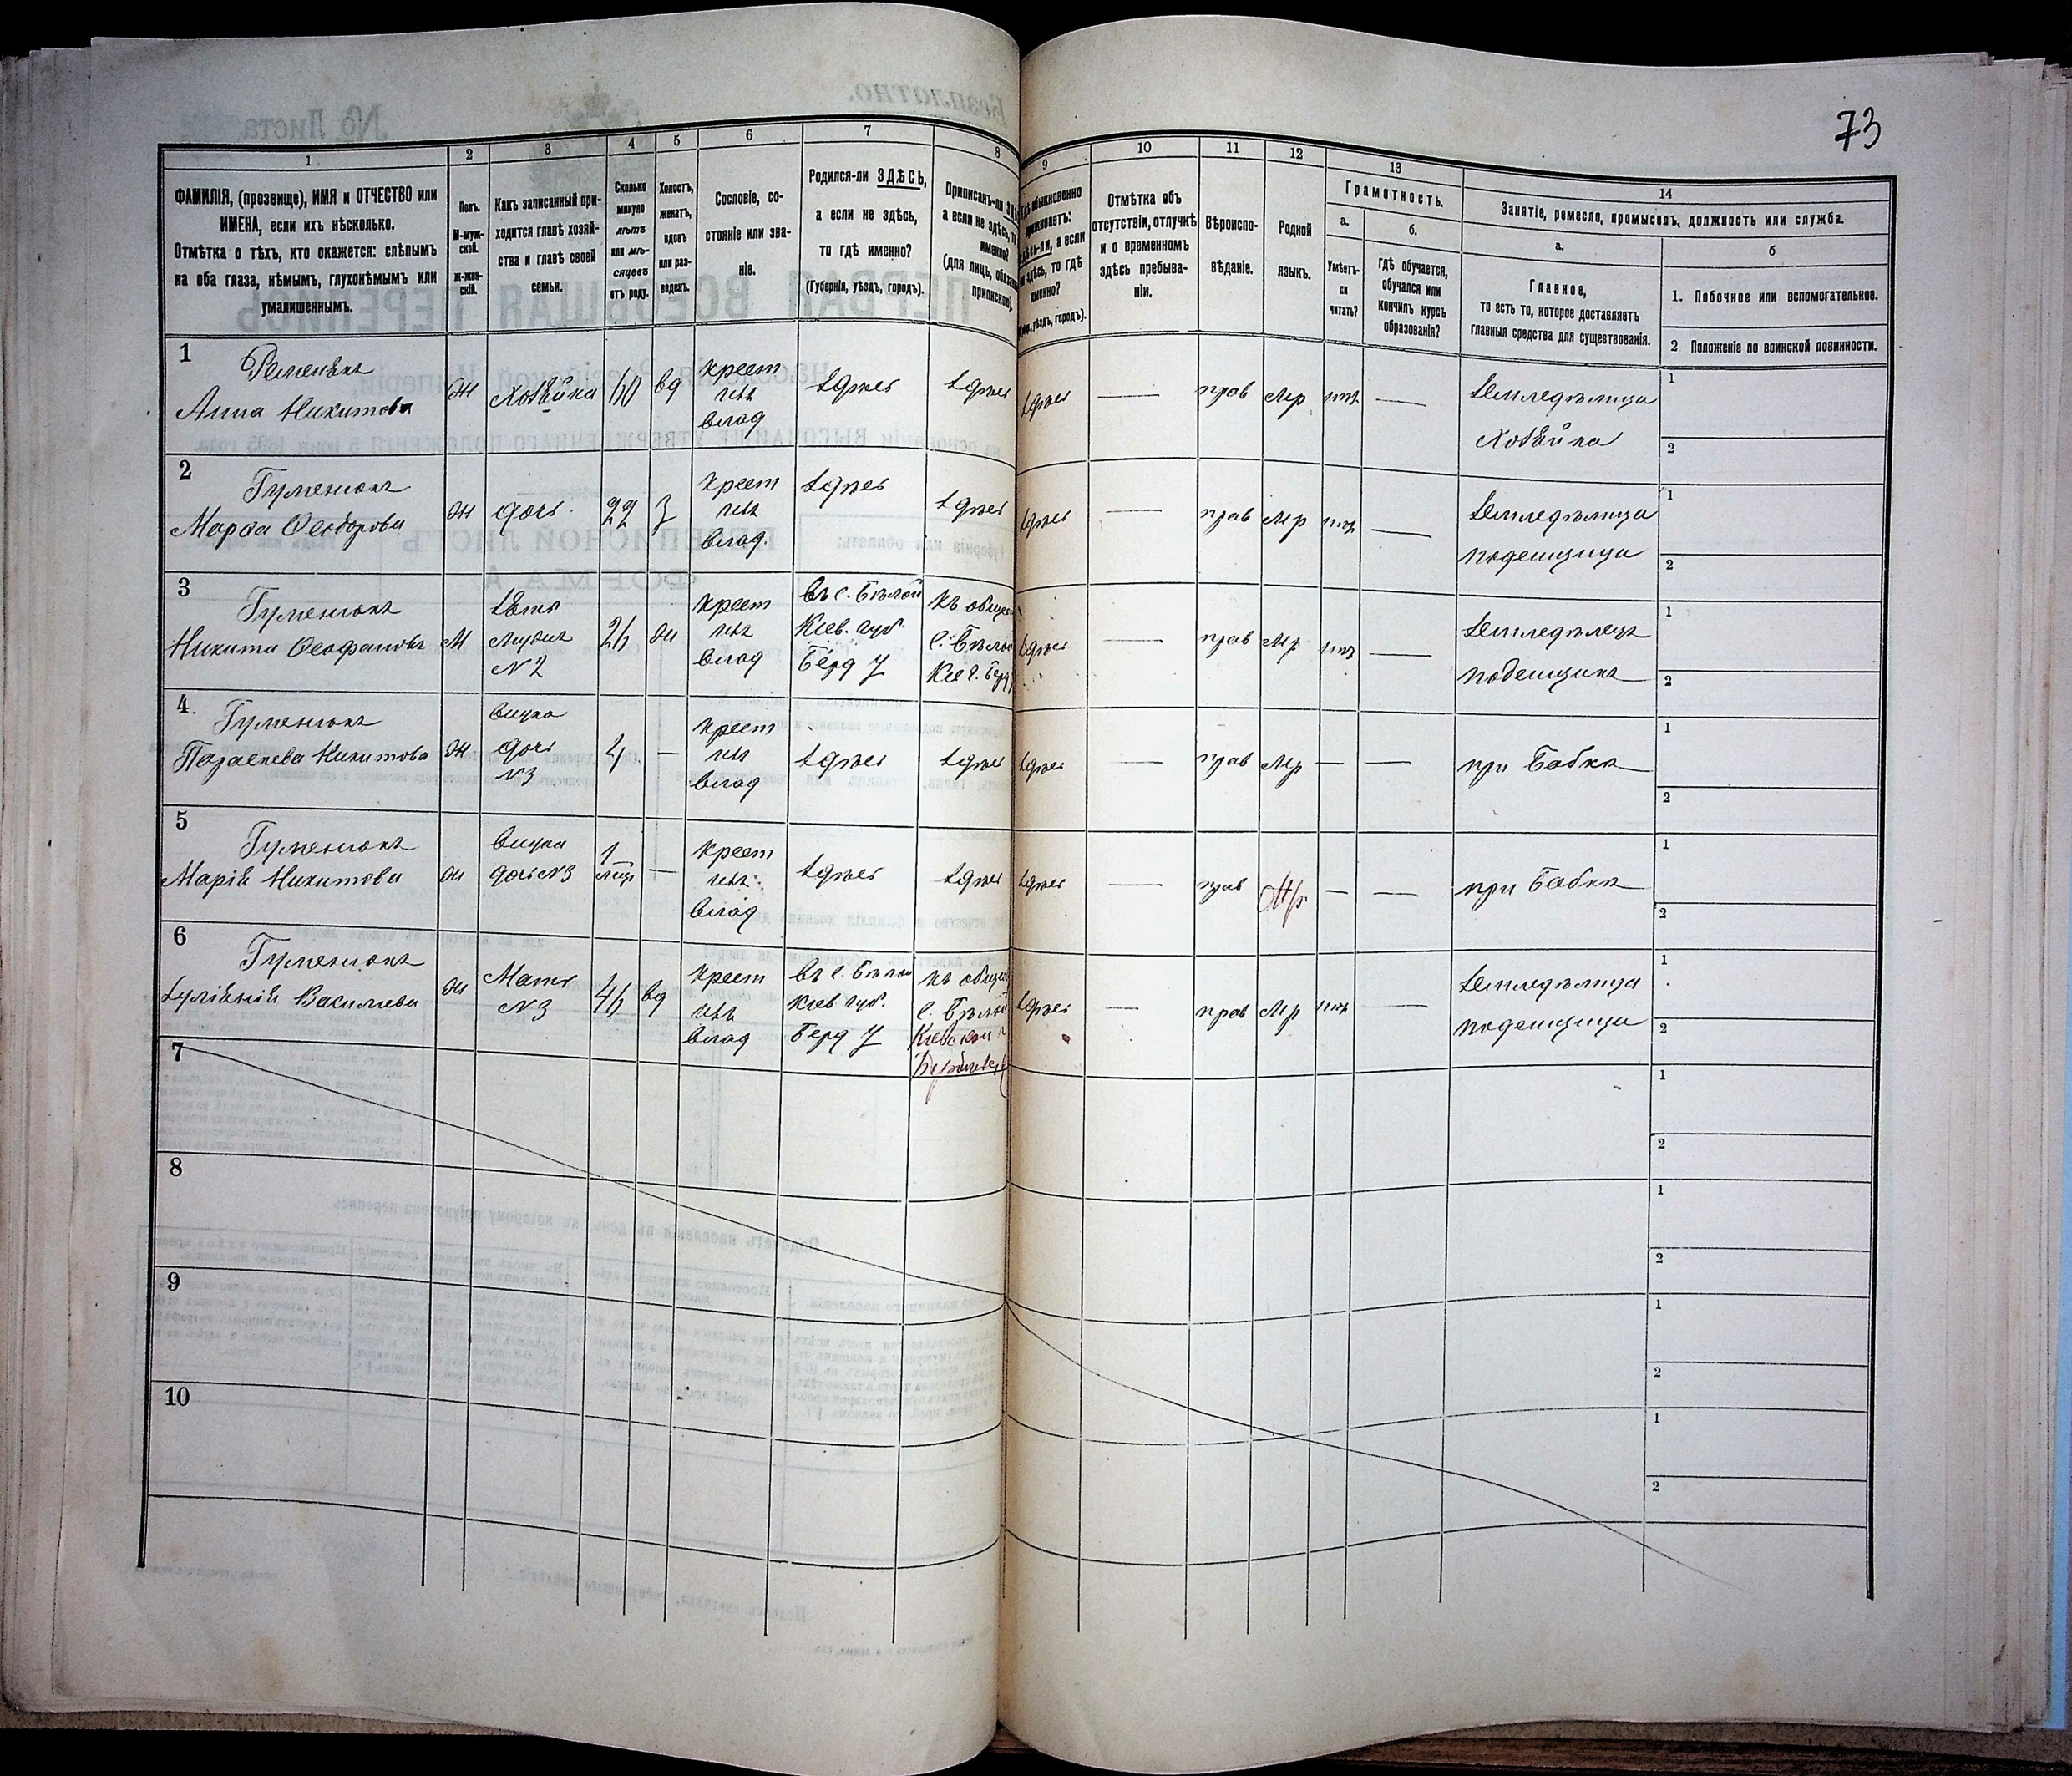 73
1
2
3
4
5
6
7
8
9
10
11
12
13
14
ФАМИЛІЯ, (прозвище), ИМЯ и ОТЧЕСТВО или
ИМЕНА, если ихъ нѣсколько.
Отмѣтка о тѣхъ, кто окажется: слѣпымъ
на оба глаза, нѣмымъ, глухонѣмымъ или
умалишеннымъ.
Полъ.
М-муж-
ской.
Ж-жен-
скій.
Какъ записанный при-
ходится главѣ хозяй-
ства и главѣ своей
семьи.
Сколько
минуло
лѣтъ
или мѣ-
сяцевъ
отъ роду.
Холостъ,
женатъ,
вдовъ
или раз-
веденъ.
Сословіе, со-
стояніе или зва-
ніе.
Родился-ли ЗДѢСЬ,
а если не здѣсь,
то гдѣ именно?
(Губернія, уѣздъ, городъ).
Приписанъ-ли
а если не здѣсь,
именно?
(для лицъ,
обыкновенно
а если
здѣсь, то гдѣ
именно?
уѣздъ, городъ).
Отмѣтка объ
отсутствіи, отлучкѣ
и о временномъ
здѣсь пребыва-
ніи.
Вѣроиспо-
вѣданіе.
Родной
языкъ.
Грамотность.
а.
Умѣетъ-
ли
читать?
б.
гдѣ обучается,
обучался или
кончилъ курсъ
образованія?
Занятіе, ремесло, промыселъ, должность или служба.
а.
Главное,
то есть то, которое доставляетъ
главныя средства для существованія.
б
1. Побочное или вспомогательное.
2 Положеніе по воинской повинности.
1
Анна Никитова
ж
Хозяйка
60
вд
крест
изъ
влад
здѣсь
здѣсь
здѣсь
—
прав
Мр
нѣт
—
Земледѣлица
Хозяйка
1
2
2
Гуменюкъ
Марѳа Ѳеодорова
ж
дочь
22
з
крест
изъ
влад.
здѣсь
здѣсь
здѣсь
—
прав
Мр
нѣт
—
Земледѣлица
поденщица
1
2
3
Гуменюкъ
Никита Ѳеофановъ
М
Зять
мужъ
N2
26
ж
крест
изъ
влад
въ с. Бѣлой
Кіев. губ.
Берд У
къ общес
с. Бѣлой
Кіев. Берд
здѣсь
—
прав
Мр
нѣт
—
Земледѣлецъ
поденщикъ
1
2
4.
Гуменюкъ
Параскева Никитова
ж
внука
дочь
N3
4
—
крест
изъ
влад
здѣсь
здѣсь
здѣсь
—
прав
Мр
—
—
при Бабкѣ
1
2
5
Гуменюкъ
Марія Никитова
ж
внука
дочь N3
1
мѣсяц
—
крест
изъ
влад
здѣсь
здѣсь
здѣсь
—
прав
Мр.
—
—
при Бабкѣ
1
2
6
Гуменюкъ
Васильева
ж
Мать
N3
46
вд
крест
изъ
влад
въ с. Бѣлой
Кіев губ.
Берд У
къ общес
с. Бѣлой
Кіевской
здѣсь
—
прав
Мр
нѣт
—
Земледѣлица
поденщица
1
2
7
1
2
8
1
2
9
1
2
10
1
2